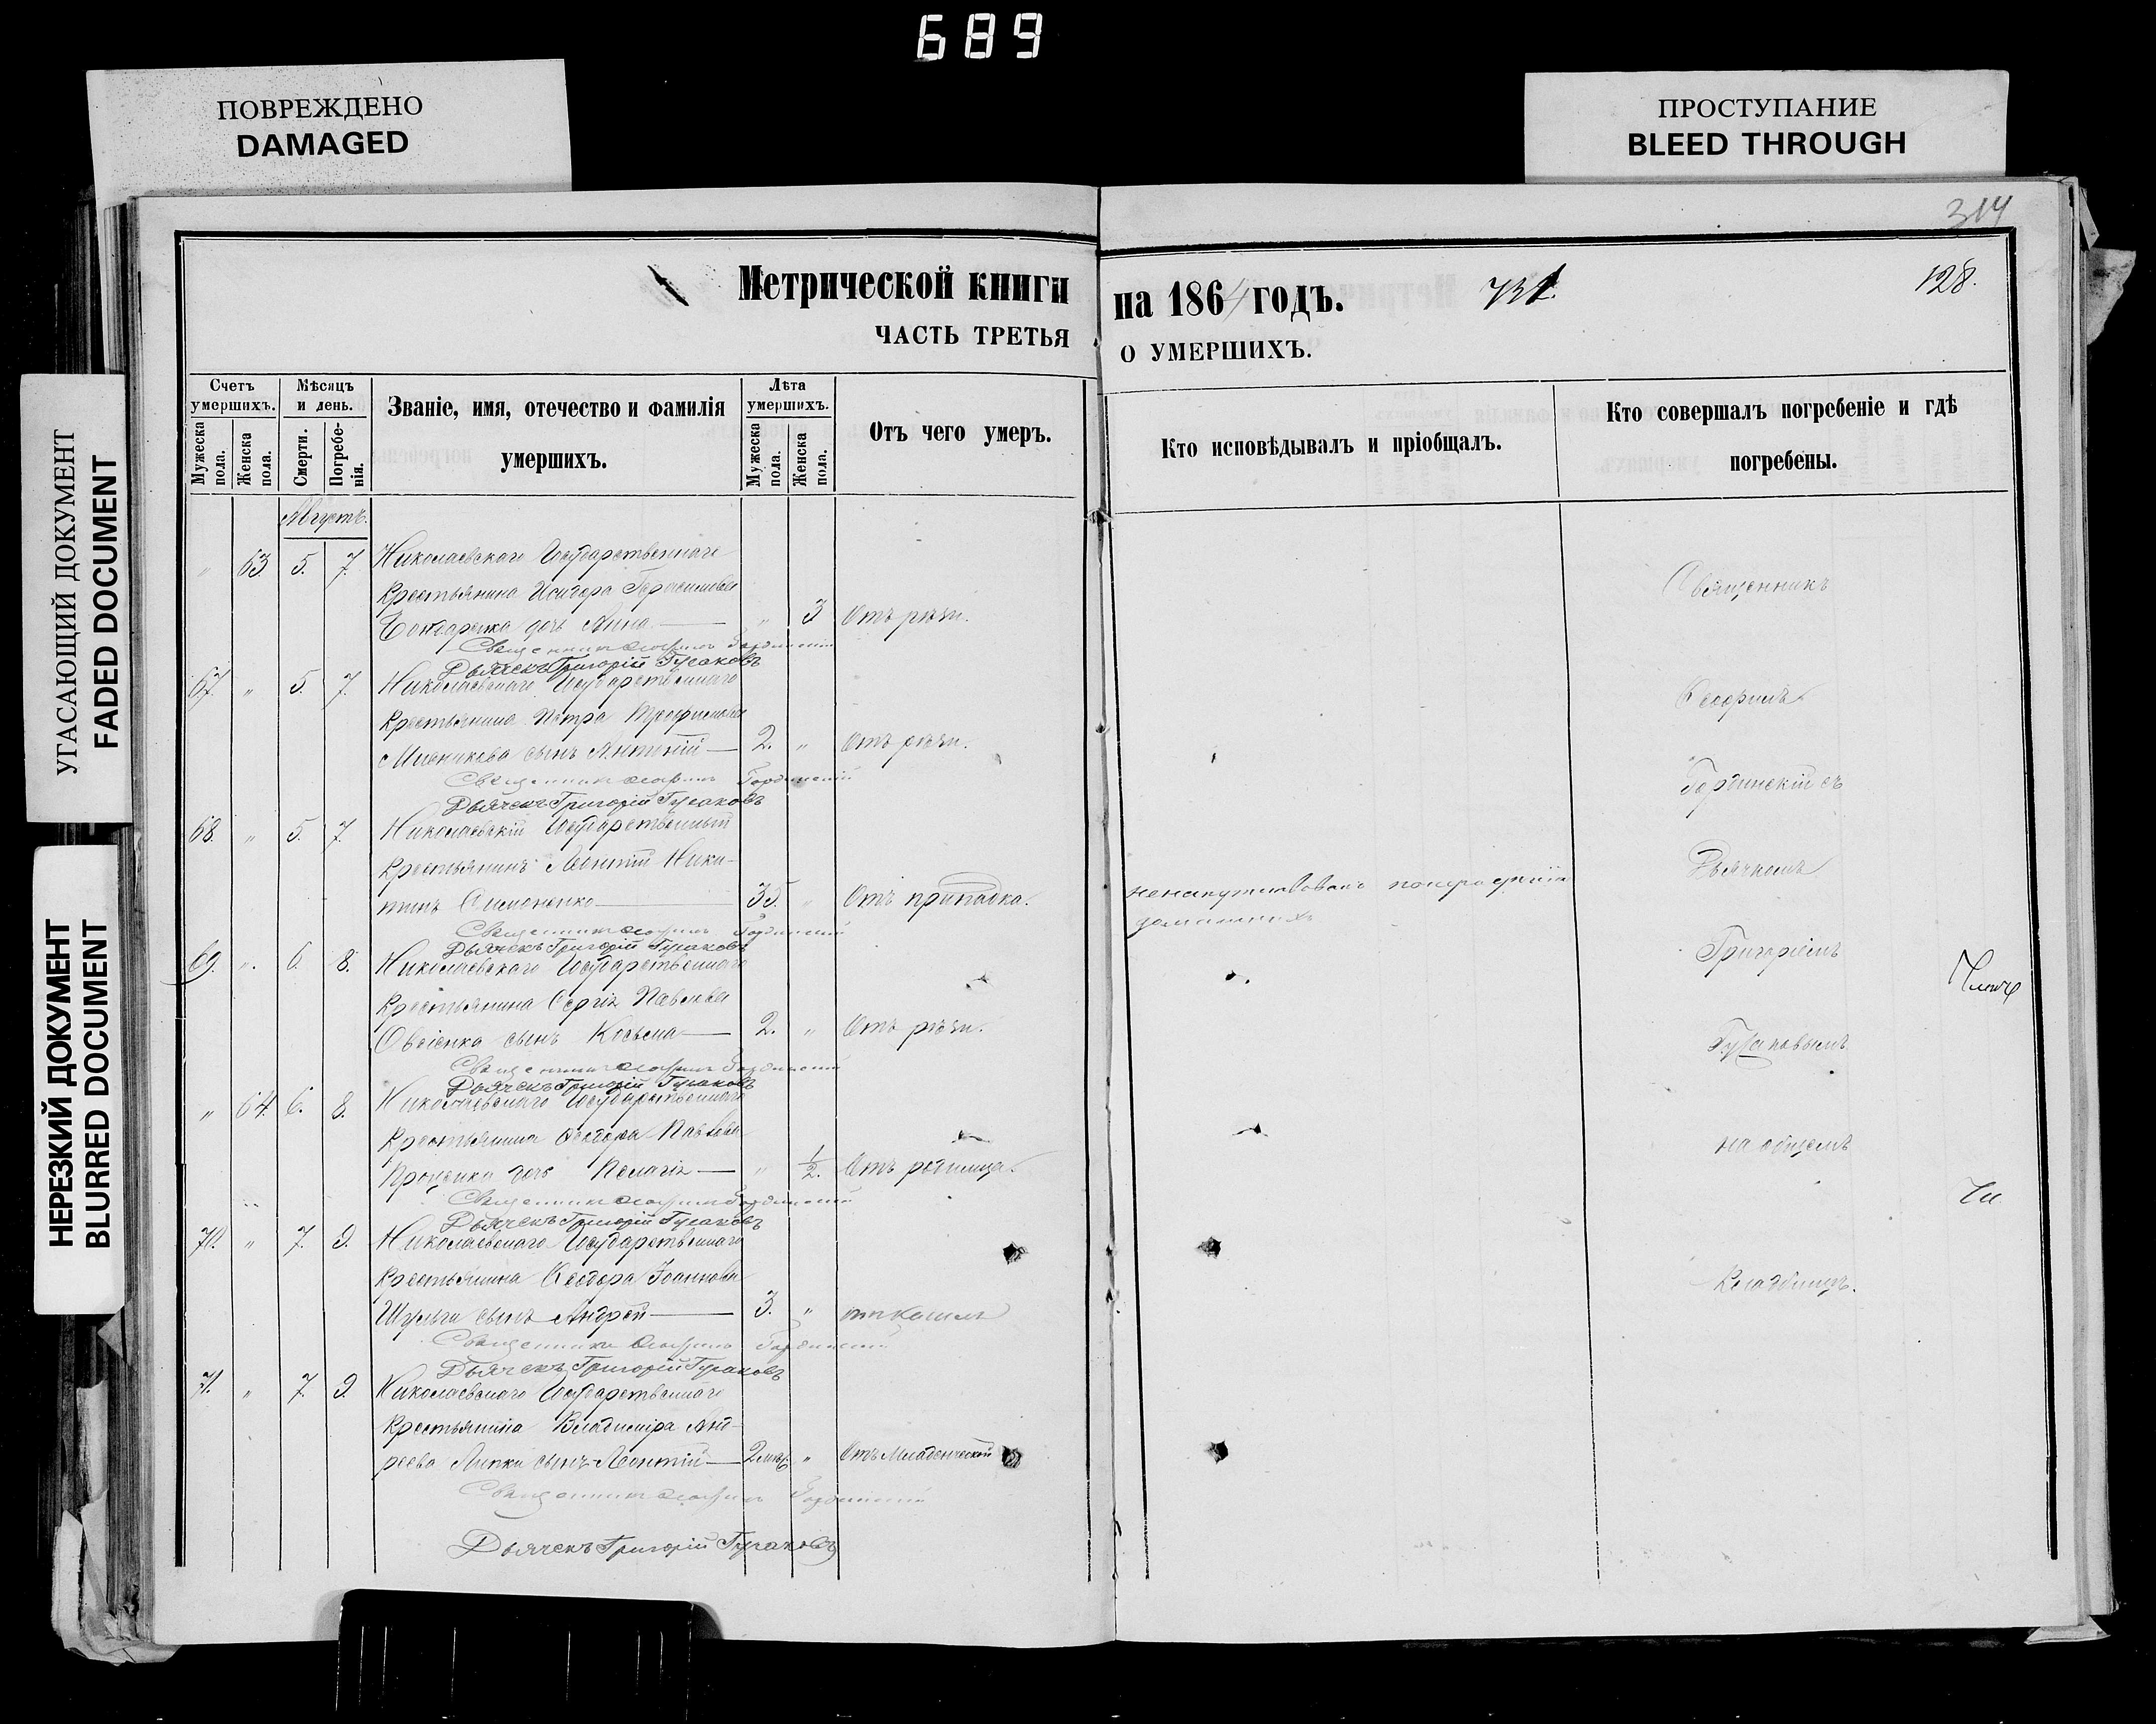 689
ПОВРЕЖДЕНО
DAMAGED
ПРОСТУПАНИЕ
BLEED THROUGH
УГАСАЮЩИЙ ДОКУМЕНТ
FADED DOCUMENT
НЕРЕЗКИЙ ДОКУМЕНТ
BLURRED DOCUMENT
314
Метрической книги на 1864 годъ.
128.
ЧАСТЬ ТРЕТЬЯ О УМЕРШИХЪ.
Счетъ умершихъ.
Мужеска пола.
Женска пола.
Мѣсяцъ и день.
Смерти.
Погребенія.
Званіе, имя, отечество и фамилія умершихъ.
Лѣта умершихъ.
Мужеска пола.
Женска пола.
Отъ чего умеръ.
Кто исповѣдывалъ и пріобщалъ.
Кто совершалъ погребеніе и гдѣ погребены.
Августъ.
" 63 5. 7. Николаевскаго Государственнаго
Крестьянина Исидора Герасимова
Бондаренка дочь Анна " 3 Отъ рѣзи.
Священникъ Гординскій
Дьячекъ Григорій Гусаковъ
67. " 5. 7. Николаевскаго Государственнаго
Крестьянина Петра Трофимова
Мирошникова сынъ Антоній 2. " Отъ рѣзи.
Священникъ Гординскій
Дьячекъ Григорій Гусаковъ
68. " 5. 7. Николаевскій Государственный
Крестьянинъ Леонтій Ники-
тинъ Симоненко 35. " Отъ припадка.
домашнихъ
Священникъ Гординскій
Дьячекъ Григорій Гусаковъ
69. " 6. 8. Николаевскаго Государственнаго
Крестьянина Сергія Павлова
Овсіенка сынъ Косьма 2. " Отъ рѣзи.
Священникъ Гординскій
Дьячекъ Григорій Гусаковъ
" 64. 6. 8. Николаевскаго Государственнаго
Крестьянина Ѳеодора Павлова
Проценка дочь Пелагія " 1/2. Отъ родимца.
Священникъ Гординскій
Дьячекъ Григорій Гусаковъ
70. " 7. 9. Николаевскаго Государственнаго
Крестьянина Ѳеодора Іоаннова
Шульги сынъ Андрей 3. " отъ кашля
Священникъ Гординскій
Дьячекъ Григорій Гусаковъ
71. " 7. 9. Николаевскаго Государственнаго
Крестьянина Владиміра Анд-
реева Липки сынъ Леонтій 2 " Отъ Младенческой
Священникъ Гординскій
Дьячекъ Григорій Гусаковъ
Священникъ
Ѳеофилъ
Гординскій съ
Дьячкомъ
Григоріемъ
Гусаковымъ
на общемъ
Кладбищѣ.